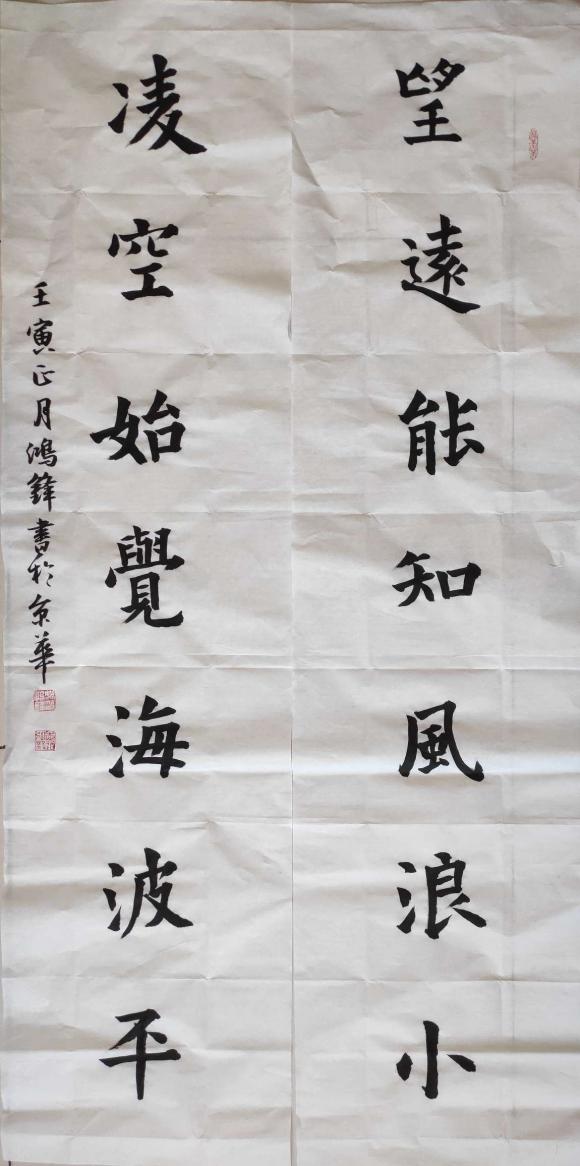 望遠能知風浪小
凌空始覺海波平
壬寅正月鴻鋒書於京華